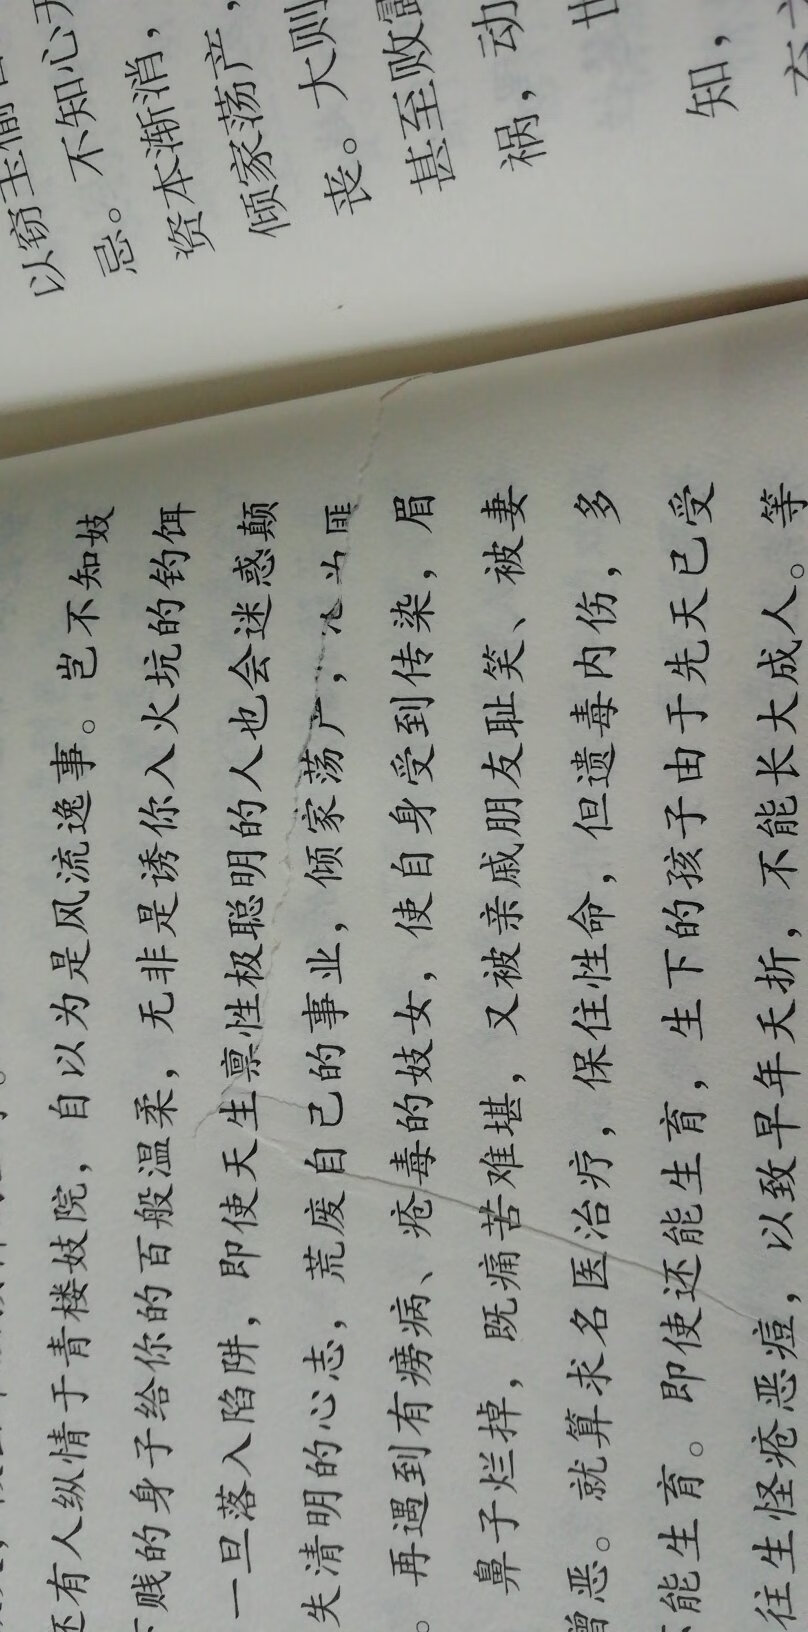 还有人纵情于青楼妓院，自以为是风流逸事。岂不知妓
贱的身子给你的百般温柔，无非是诱你入火坑的钓饵
一旦落入陷阱，即使天生禀性极聪明的人也会迷惑颠
失清明的心志，荒废自己的事业，倾家荡产，为匪
。再遇到有痨病、疮毒的妓女，使自身受到传染，眉
鼻子烂掉，既痛苦难堪，又被亲戚朋友耻笑、被妻
憎恶。就算求名医治疗，保住性命，但遗毒内伤，多
能生育。即使还能生育，生下的孩子由于先天已受
往生怪疮恶痘，以致早年夭折，不能长大成人。等
以窃玉偷
忌。不知心
资本渐消，
倾家荡产，
丧。大则
甚至败露
祸，动
世
知，